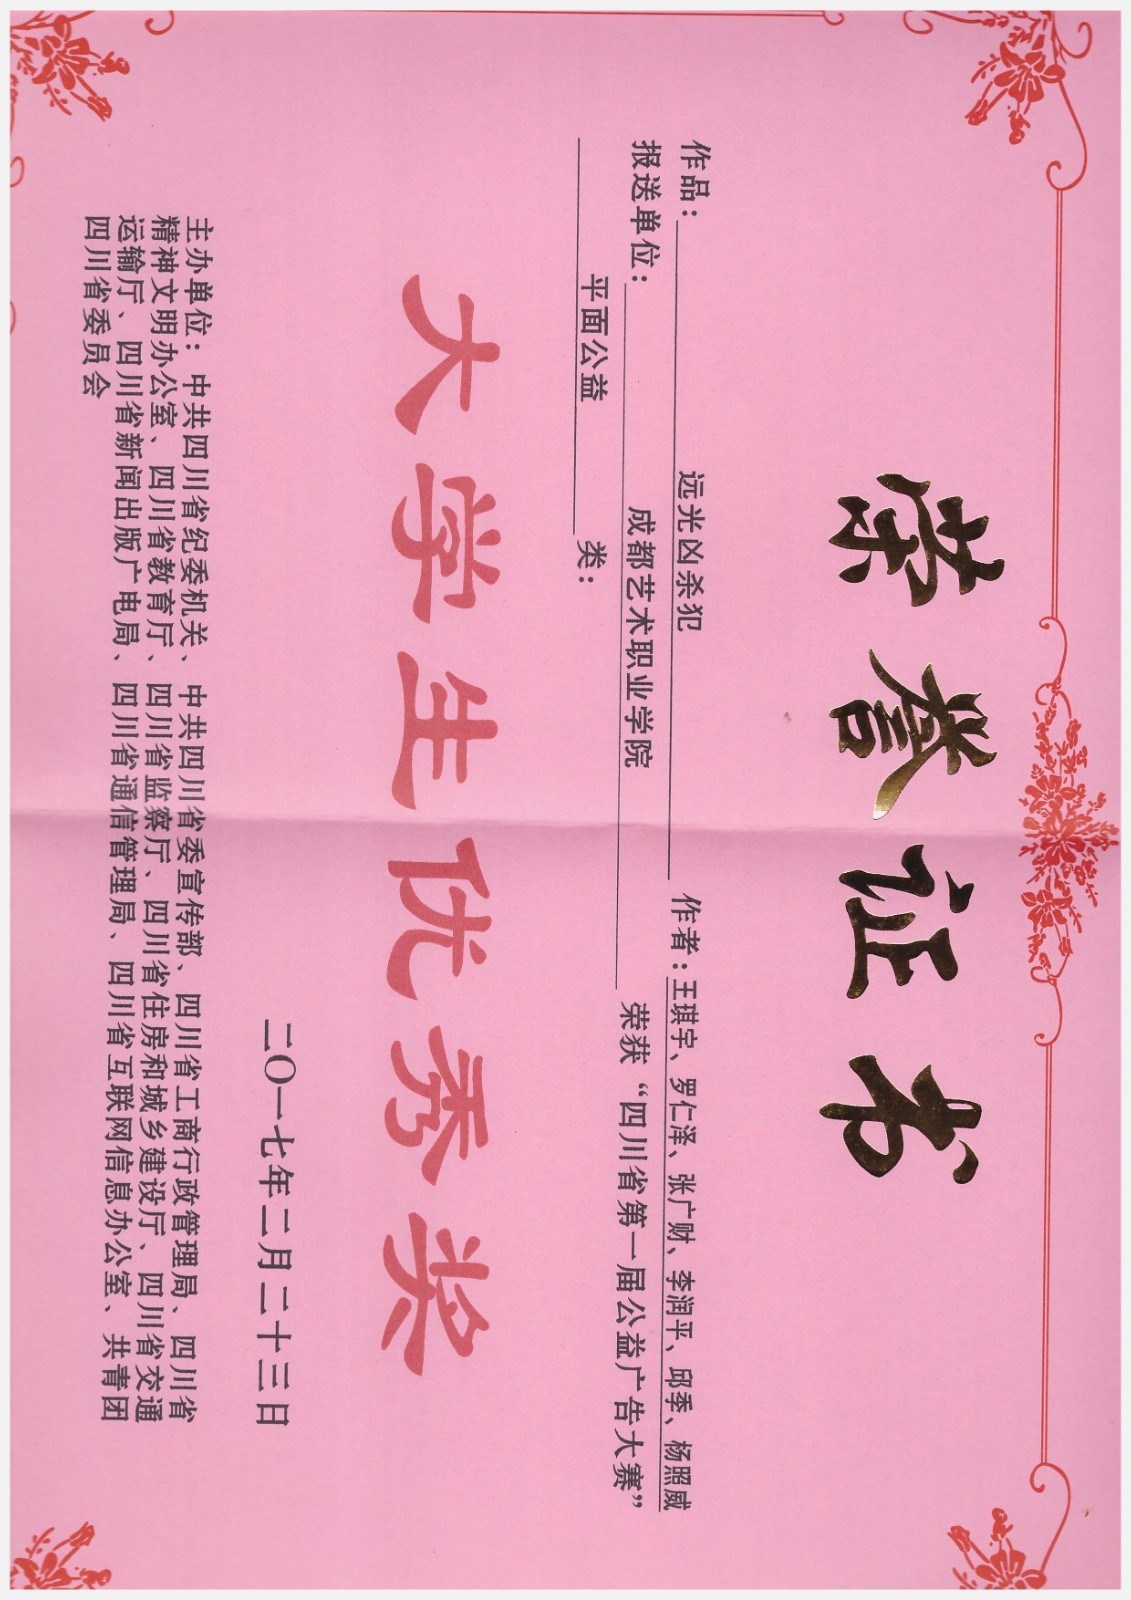 荣誉证书
作品：远光凶杀犯 作者：王琪宇、罗仁泽、张广财、李润平、邱季、杨照威
报送单位：成都艺术职业学院 荣获“四川省第一届公益广告大赛”
平面公益 类：
大学生优秀奖
二〇一七年二月二十三日
主办单位：中共四川省纪委机关、中共四川省委宣传部、四川省工商行政管理局、四川省
精神文明办公室、四川省教育厅、四川省监察厅、四川省住房和城乡建设厅、四川省交通
运输厅、四川省新闻出版广电局、四川省通信管理局、四川省互联网信息办公室、共青团
四川省委员会